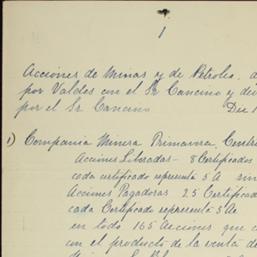 1
Acciones de Minas y de Petroleo, d
por Valdes con el Sr Cancino y di
por el Sr Cancino Dic 1
1) Compania Minera Primavera, Centro
Acciones Libradas - 8 Certificados
cada certificado representa 5 A sin
Acciones Pagadoras 25 Certificad
cada Certificado representa 5 As
en todo 165 Acciones que c
con el producto de la venta de